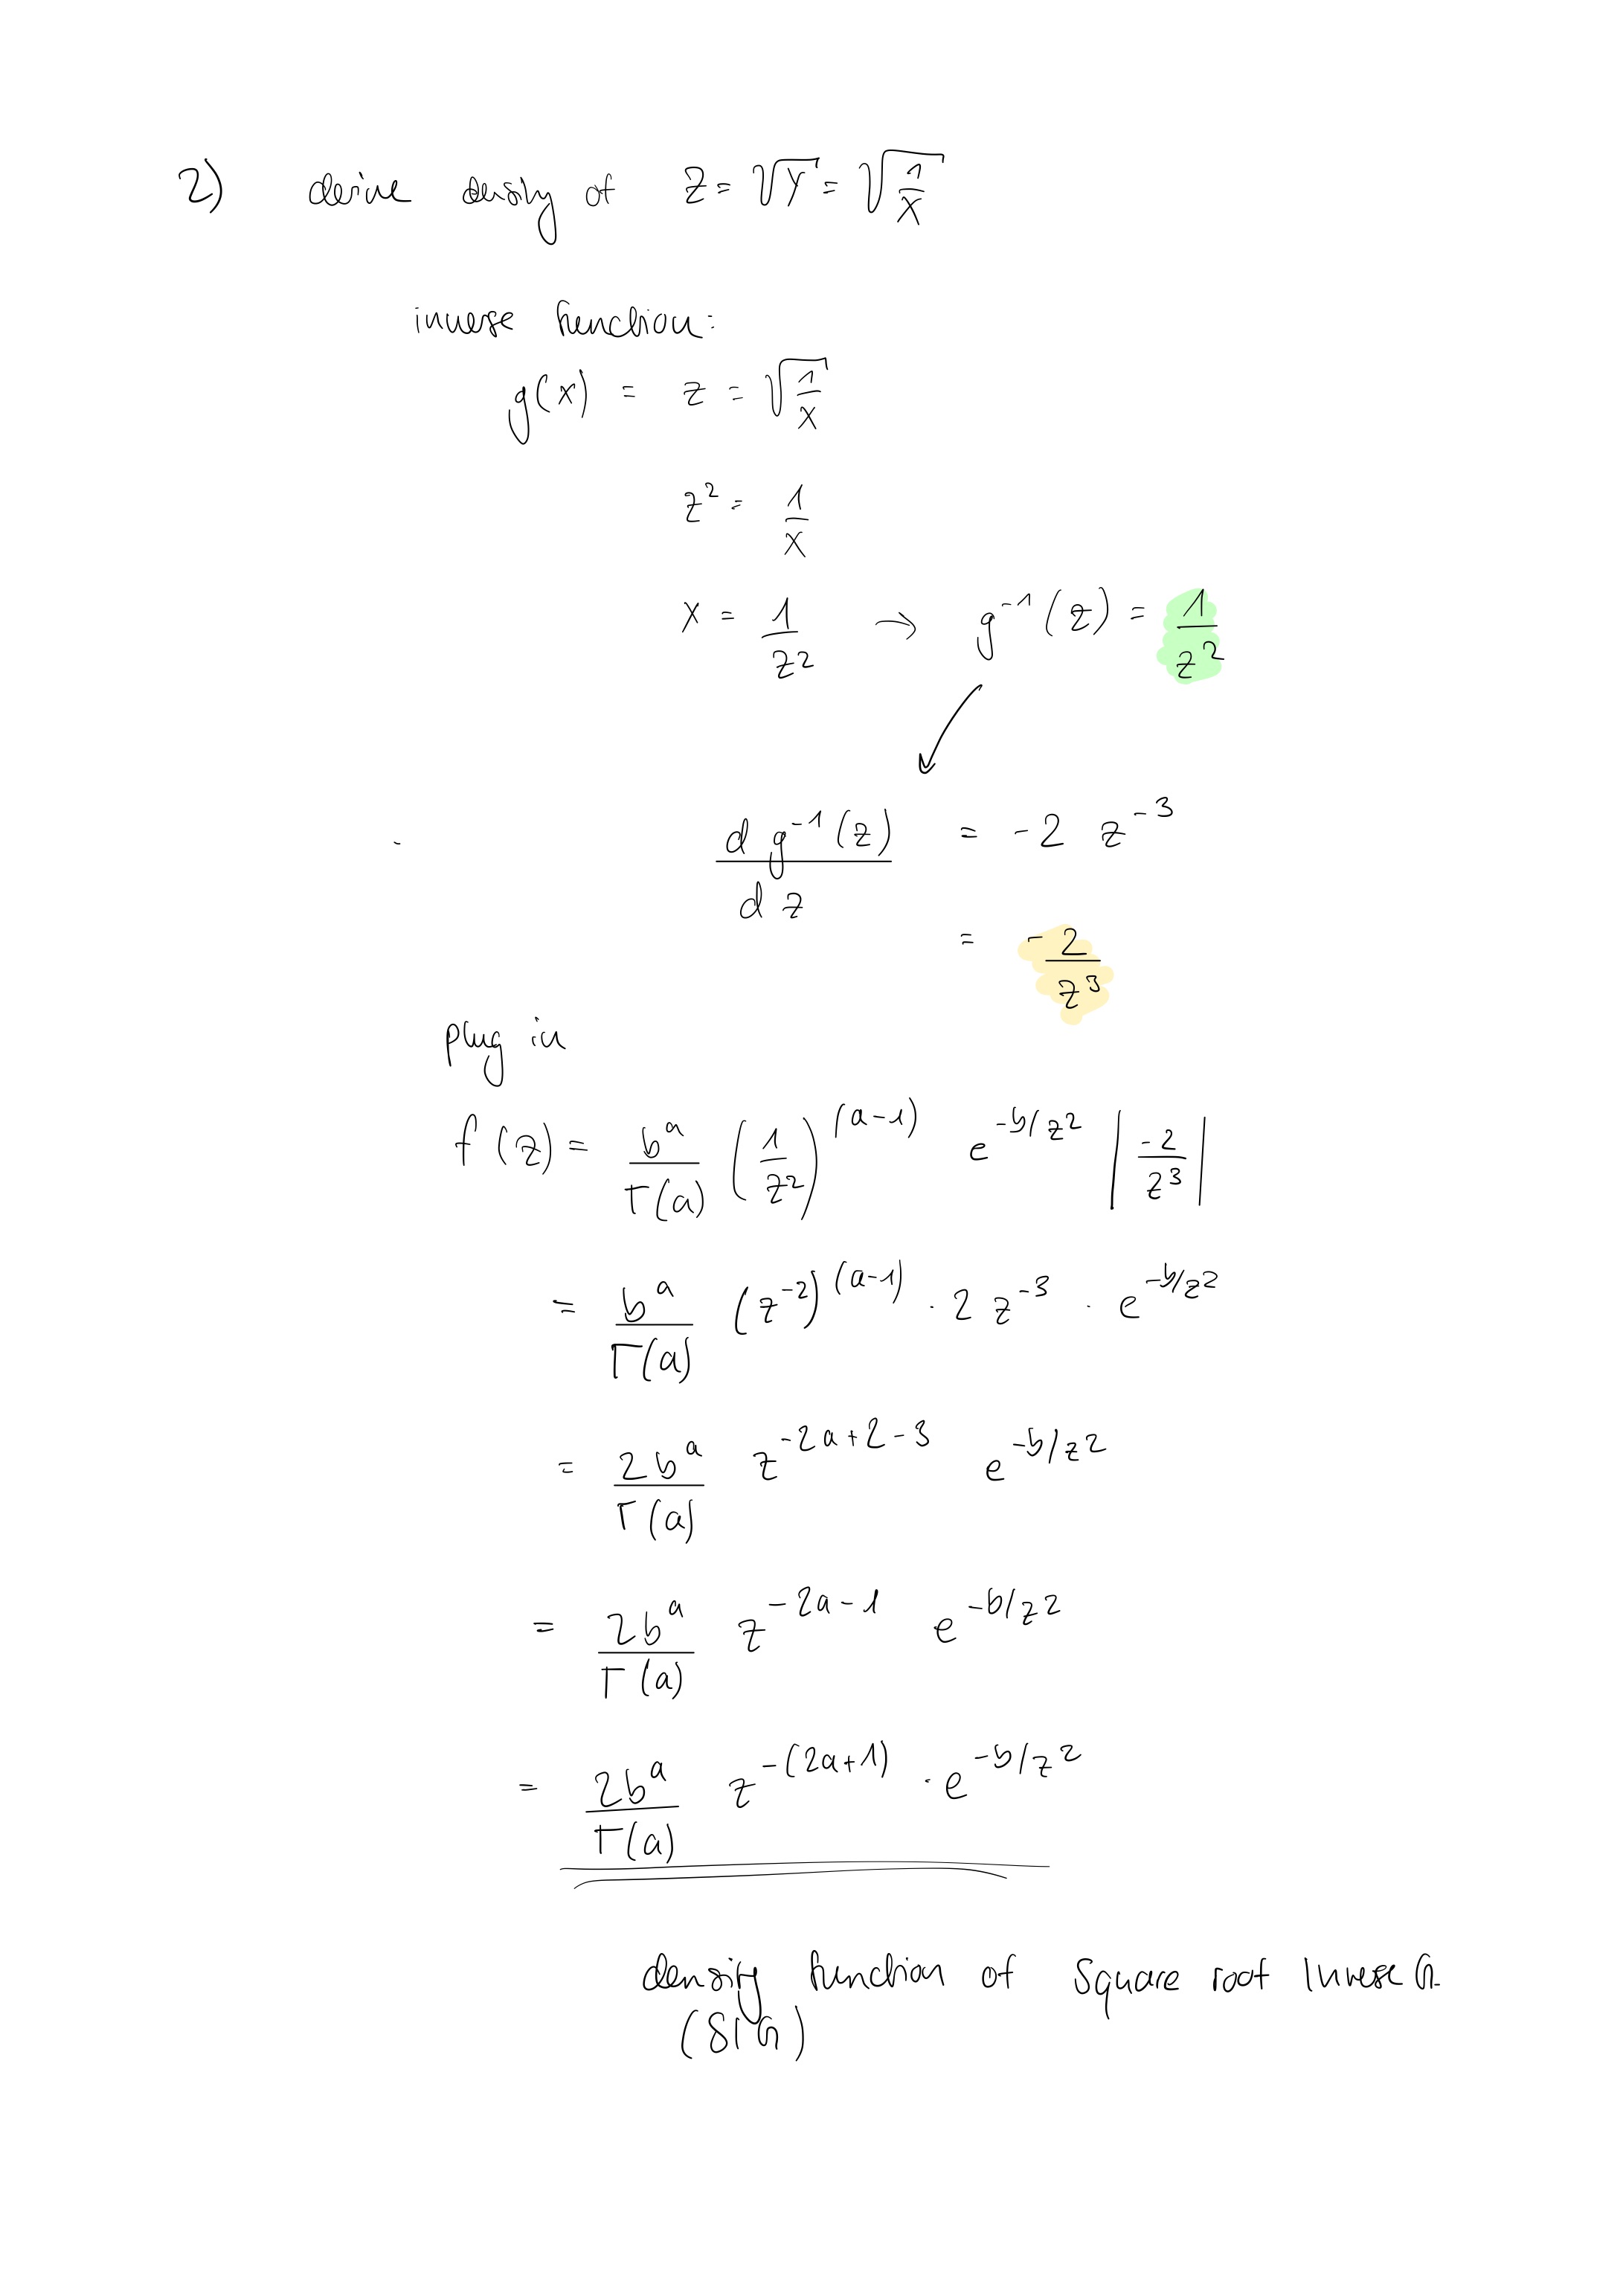 2) derive density of Z = √Y = √(1/X)
inverse function:
g(x) = z = √(1/x)
z² = 1/x
x = 1/z² → g⁻¹(z) = 1/z²
d g⁻¹(z) / dz = -2 z⁻³
= -2/z³
plug in
f(z) = bᵃ/Γ(a) (1/z²)^(a-1) e^(-b/z²) |-2/z³|
= bᵃ/Γ(a) (z⁻²)^(a-1) · 2 z⁻³ · e^(-b/z²)
= 2bᵃ/Γ(a) z^(-2a+2-3) e^(-b/z²)
= 2bᵃ/Γ(a) z^(-2a-1) e^(-b/z²)
= 2bᵃ/Γ(a) z^-(2a+1) · e^(-b/z²)
density function of Square root Inverse G.
(SIG)